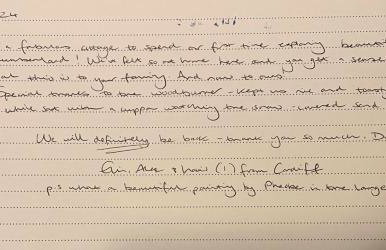 24
a fabulous cottage to spend our first time exploring beautiful
! We felt so at home here and you get a sense
at this is to your family. And now to ours!
Special thanks to the woodburner - kept us nice and toasty
while sat with a cuppa watching the snow-covered sand
We will definitely be back - thank you so much. D
Gin, Alex & (1) from Cardiff
p.s what a beautiful painting by in the large